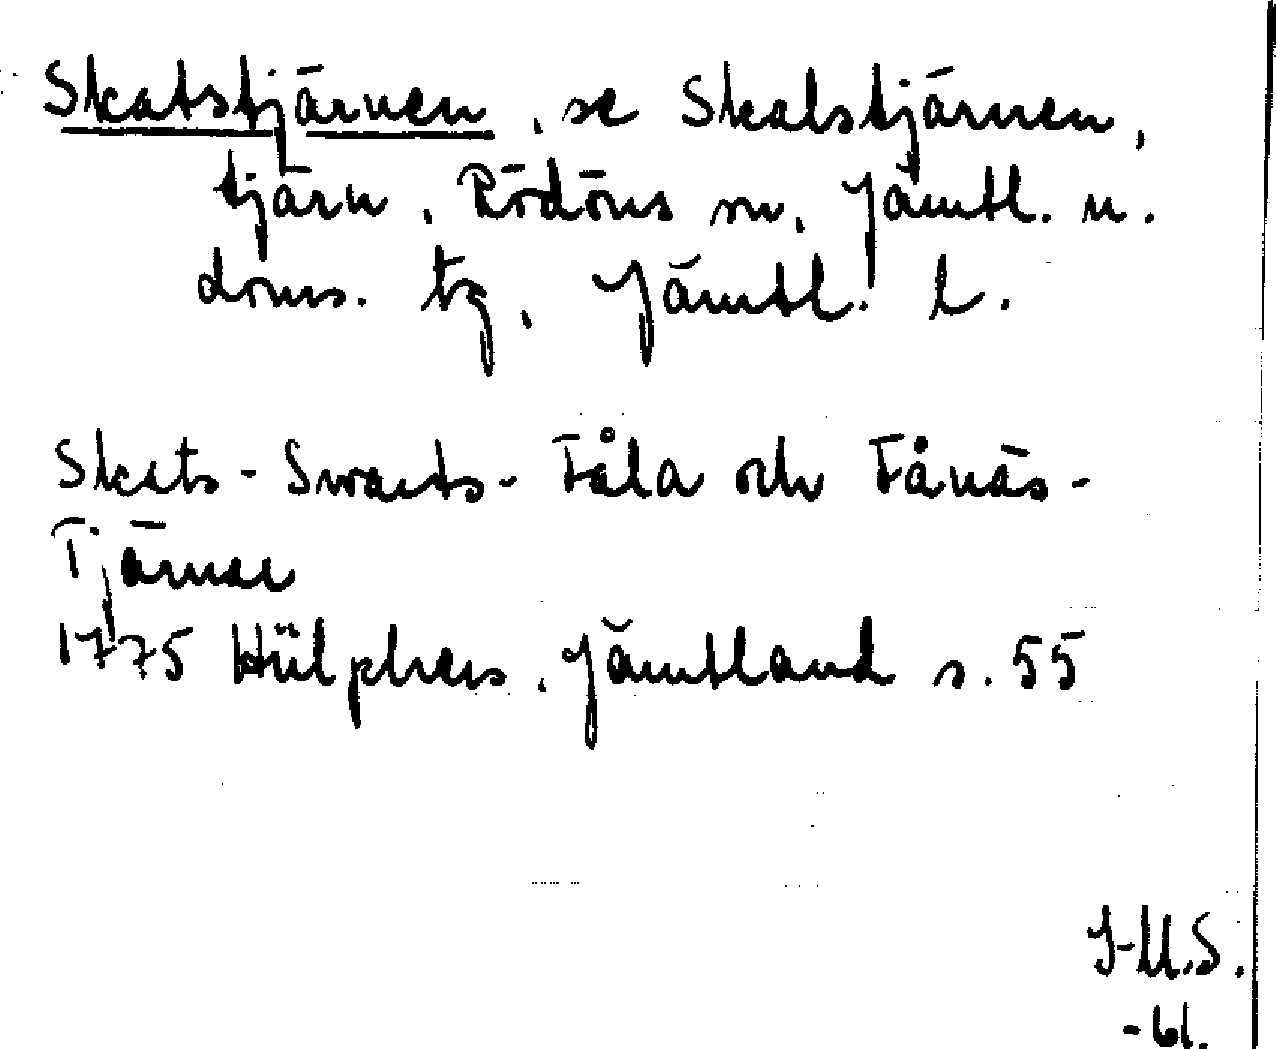 Skatstjärnen, se Skalstjärnen,
tjärn, Rödöns sn, Jämtl. n.
doms. tg, Jämtl. l.
Skats- Swarts- Fåla och Fånäs-
Tjärnar
1775 Hülphers, Jämtland s. 55
I-M.S.
-61.